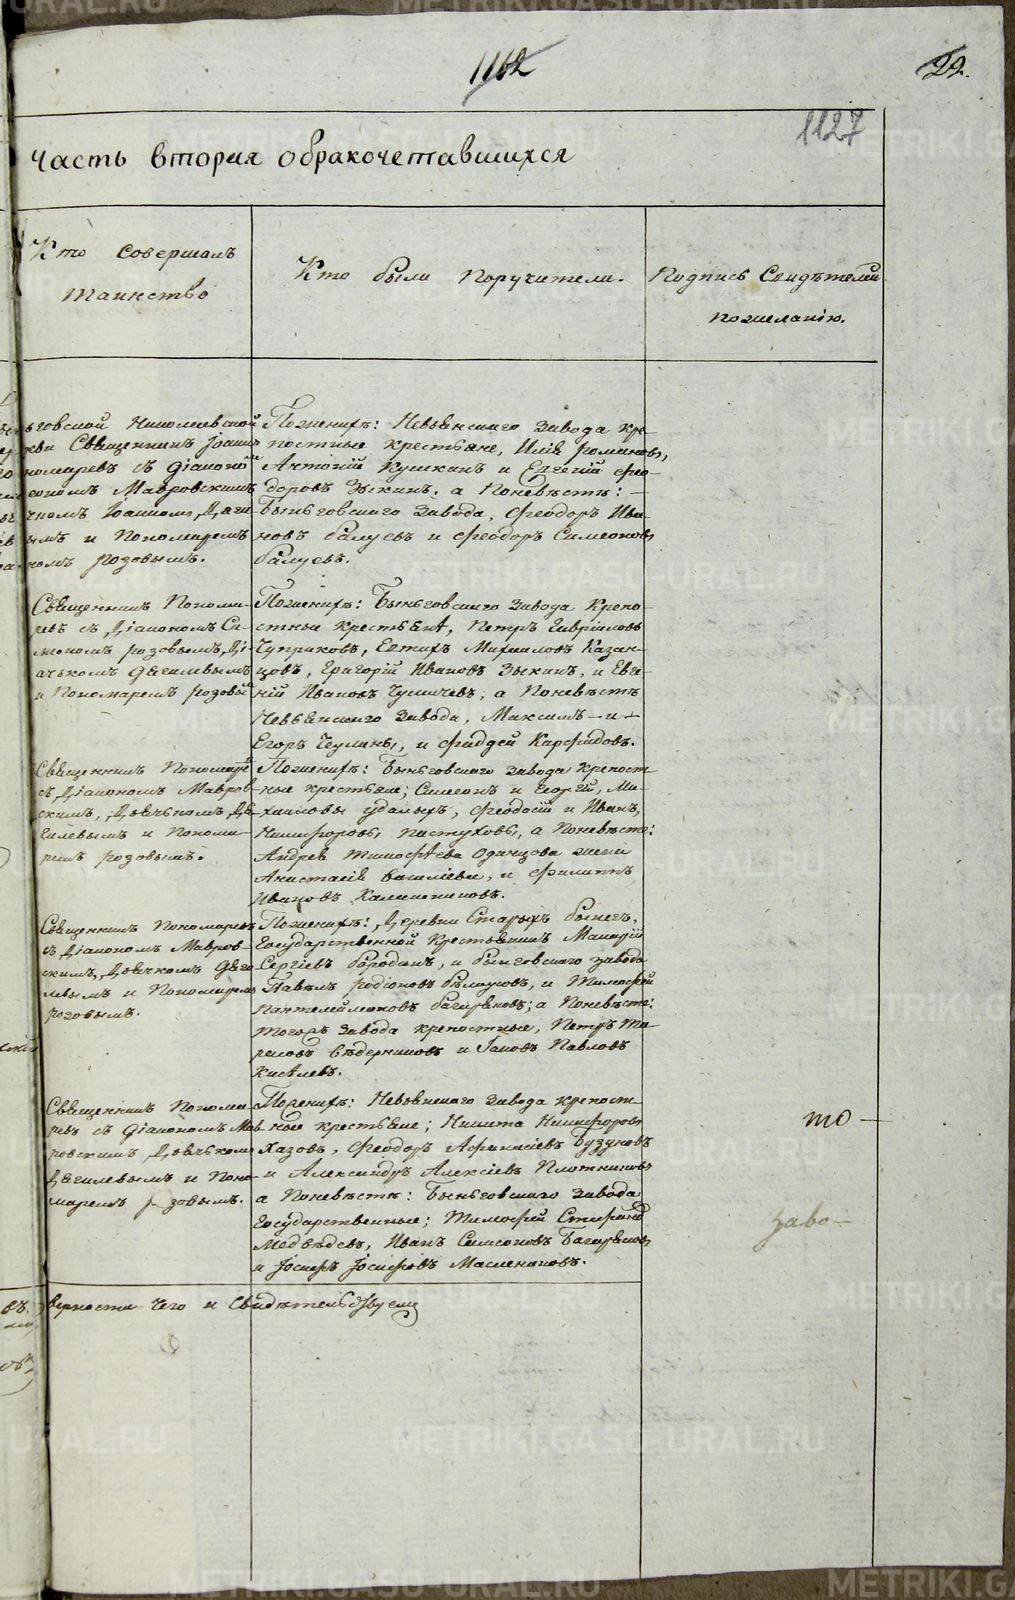 1162
29.
1127
часть вторая обракочетавшихся
Кто Совершалъ
таинство
Кто были Поручители.
Подпись Свидѣтелей
пожеланію.
говской Николаевской
Священникъ Іоаннъ
номаревъ съ Діакономъ
Мавровскимъ
и Пономаремъ
розовымъ.
Поженихѣ: Невьянскаго завода крѣ-
постные крестьяне, Илія романовъ,
Антоній Кушкинъ и Евгеній Фео-
доровъ Зыкинъ. а Поневѣстѣ: —
Быньговскаго завода, Феодоръ Ива-
новъ балуевъ и Феодоръ Симеоновъ
балуевъ.
Священникъ Понома-
ревъ съ Діакономъ Си-
меономъ розовымъ, Дь-
ячькомъ Дягилевымъ
и Пономаремъ розовый
Поженихѣ: Быньговскаго завода Крепо-
стные крестьяне, Петръ Гавриловъ
Чуприковъ, Евтихъ Михаиловъ Казан-
цовъ, Григорій Ивановъ Зыкинъ, и Евге-
ній Ивановъ Чумичевъ, а Поневѣстѣ
Невьянскаго завода, Максимъ — и —
Егоръ Чеулины, и Фаддей Карфидовъ.
Священникъ Пономаревъ
съ Діакономъ Мавров-
скимъ, Дьячькомъ Дя-
гилевымъ и Понома-
ремъ розовымъ.
Поженихѣ: Быньговскаго завода крепост-
ные крестьяне; Симеонъ и Георгій, Ми-
хаиловы удалыхъ, Феодосій и Иванъ,
Никифоровы пастуховы, а Поневѣстѣ:
Андрея тимофѣева Одинцова жена
Анастасія василіева, и Филиппъ
Ивановъ Калашниковъ.
Священникъ Пономаревъ
съ Діакономъ Мавров-
скимъ, Дьячкомъ Дяги-
левымъ и Пономаремъ
розовымъ.
Поженихѣ: Деревни Старыхъ бынегъ,
Государственной Крестьянинъ
Сергіевъ бородинъ, и быньговскаго завода
Павелъ родіоновъ бѣлоусовъ, и Тимофей
Пантелеймоновъ багаряковъ; а Поневѣстѣ:
тогожъ завода крепостные, Петръ
ведерниковъ и Іаковъ Павловъ
Киселевъ.
Священникъ Понома-
ревъ съ Діакономъ Мав-
ровскимъ, Дьячькомъ
Дягилевымъ и Поно-
маремъ розовымъ.
Поженихѣ: Невьянскаго завода крепост-
ные крестьяне; Никита Никифоровъ
Хазовъ, Феодоръ Афанасіевъ Буздуновъ
и Александръ Алексіевъ Плотниковъ
а Поневѣстѣ: Быньговскаго завода
Государственные; Тимофей
Медвѣдевъ, Иванъ Симеоновъ Багаряковъ
и Іосифъ Іосифовъ Масленниковъ.
то —
заво —
верности чего и Свидѣтельствуемъ
METRIKI.GASO-URAL.RU